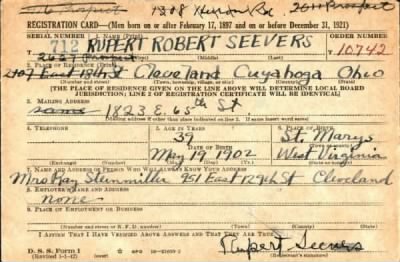 1308 Huron Rd 2011 Prospect
REGISTRATION CARD—(Men born on or after February 17, 1897 and on or before December 31, 1921)
SERIAL NUMBER 1. NAME (Print) ORDER NUMBER
712 RUPERT ROBERT SEEVERS T 10742
2. PLACE OF RESIDENCE (Print)
2107 East 18th St Cleveland Cuyahoga Ohio
[THE PLACE OF RESIDENCE GIVEN ON THE LINE ABOVE WILL DETERMINE LOCAL BOARD
JURISDICTION; LINE 2 OF REGISTRATION CERTIFICATE WILL BE IDENTICAL]
3. MAILING ADDRESS
same 1823 E. 65th St
[Mailing address if other than place indicated on line 2. If same insert word same]
4. TELEPHONE 5. AGE IN YEARS 6. PLACE OF BIRTH
39 St. Marys
DATE OF BIRTH
May 19 1902 West Virginia
7. NAME AND ADDRESS OF PERSON WHO WILL ALWAYS KNOW YOUR ADDRESS
Mrs Ray 951 East 129th St Cleveland
8. EMPLOYER'S NAME AND ADDRESS
None
9. PLACE OF EMPLOYMENT OR BUSINESS
I AFFIRM THAT I HAVE VERIFIED ABOVE ANSWERS AND THAT THEY ARE TRUE.
D. S. S. Form 1
(Revised 1-1-42) Rupert Seevers